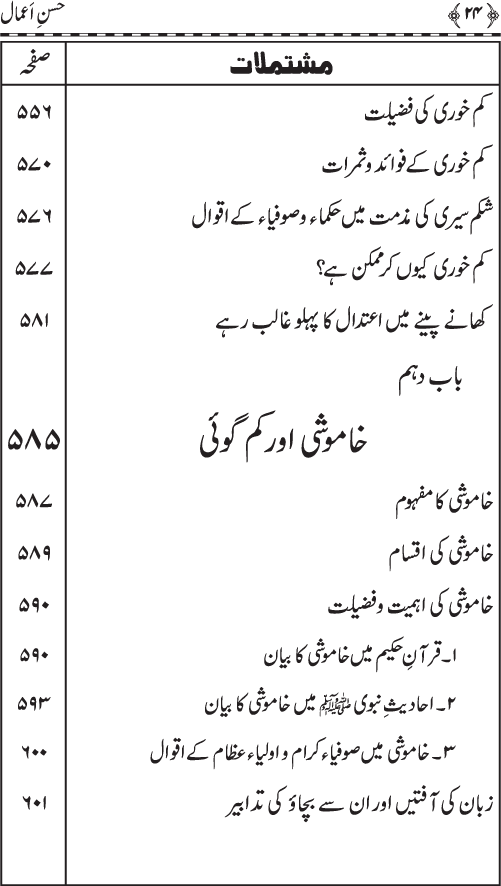 ﴿۲۴﴾ حسنِ اَعمال
مشتملات صفحہ
کم خوری کی فضیلت ۵۵۶
کم خوری کے فوائد و ثمرات ۵۷۰
شکم سیری کی مذمت میں حکماء و صوفیاء کے اقوال ۵۷۶
کم خوری کیوں کر ممکن ہے؟ ۵۷۷
کھانے پینے میں اعتدال کا پہلو غالب رہے ۵۸۱
باب دہم
خاموشی اور کم گوئی ۵۸۵
خاموشی کا مفہوم ۵۸۷
خاموشی کی اقسام ۵۸۹
خاموشی کی اہمیت و فضیلت ۵۹۰
۱۔ قرآنِ حکیم میں خاموشی کا بیان ۵۹۰
۲۔ احادیثِ نبوی ﷺ میں خاموشی کا بیان ۵۹۳
۳۔ خاموشی میں صوفیاء کرام و اولیاء عظام کے اقوال ۶۰۰
زبان کی آفتیں اور ان سے بچاؤ کی تدابیر ۶۰۱